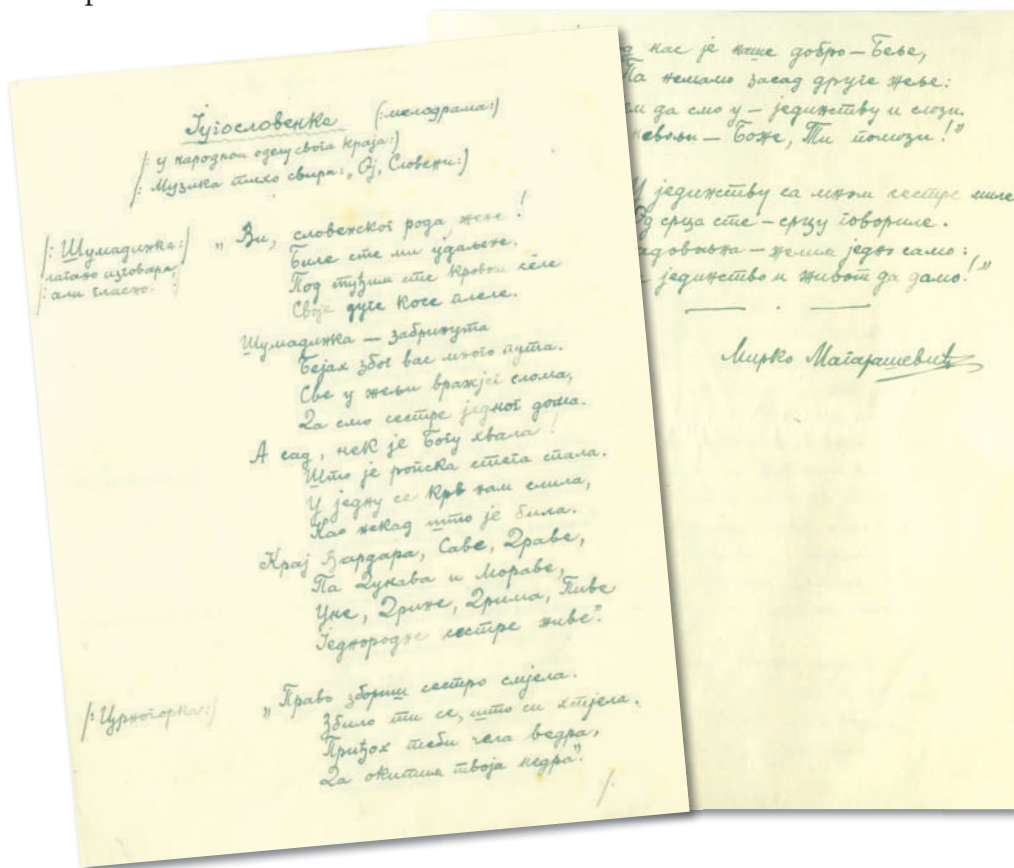 Југословенке (:мелодрама:)
/: у народном оделу свога краја:)
/: Музика тихо свира: „Ој, Словени:)
/: Шумадинка:/
лагано изговара,
али гласно:
„Ви, словенског рода, жене!
Биле сте ми удаљене.
Под туђим сте кровом селе
Своје дуге косе плеле.
Шумадинка — забринута
Бејах због вас много пута.
Све у жељи вражјег слома,
Да смо сестре једног дома.
А сад, нек је Богу хвала!
Што је ропска стега спала.
У једну се крв нам слила,
Као некад што је била.
Крај Вардара, Саве, Драве,
Па Дунава и Мораве,
Цне, Дрине, Дрима, Пиве
Једнородне сестре живе.”
/: Црногорка:/
„Право збориш сестро смјела.
Збило ти се, што си хтјела.
Приђох теби чела ведра,
Да окитим твоја недра”.
/.
нас је наше добро — Беље,
Па немамо засад друге жеље:
да смо у — јединству и слози.
невољи — Боже, Ти помози!”
У јединству са мном сестре миле
Од срца сте — срцу говориле.
Задовољна — желим једно само:
јединство и живот да дамо!”
Мирко Магарашевић